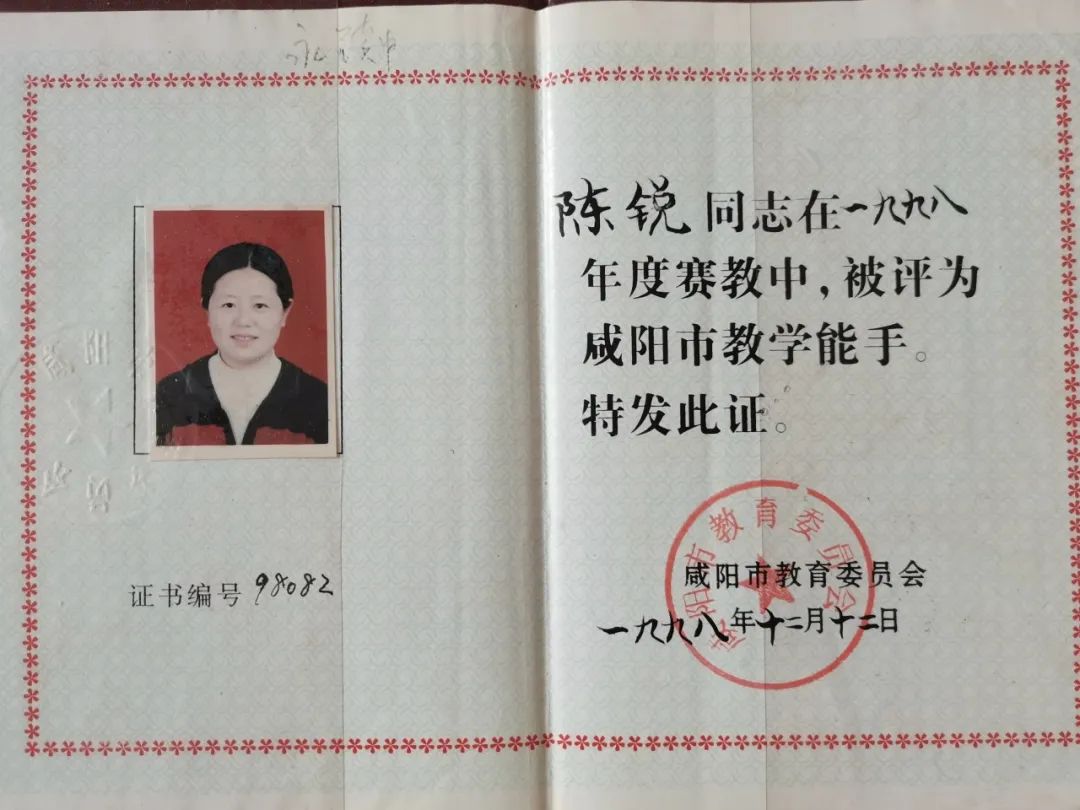 证书编号 98082
陈锐同志在一九九八
年度赛教中,被评为
咸阳市教学能手。
特发此证。
咸阳市教育委员会
咸阳市教育委员会
一九九八年十二月十二日